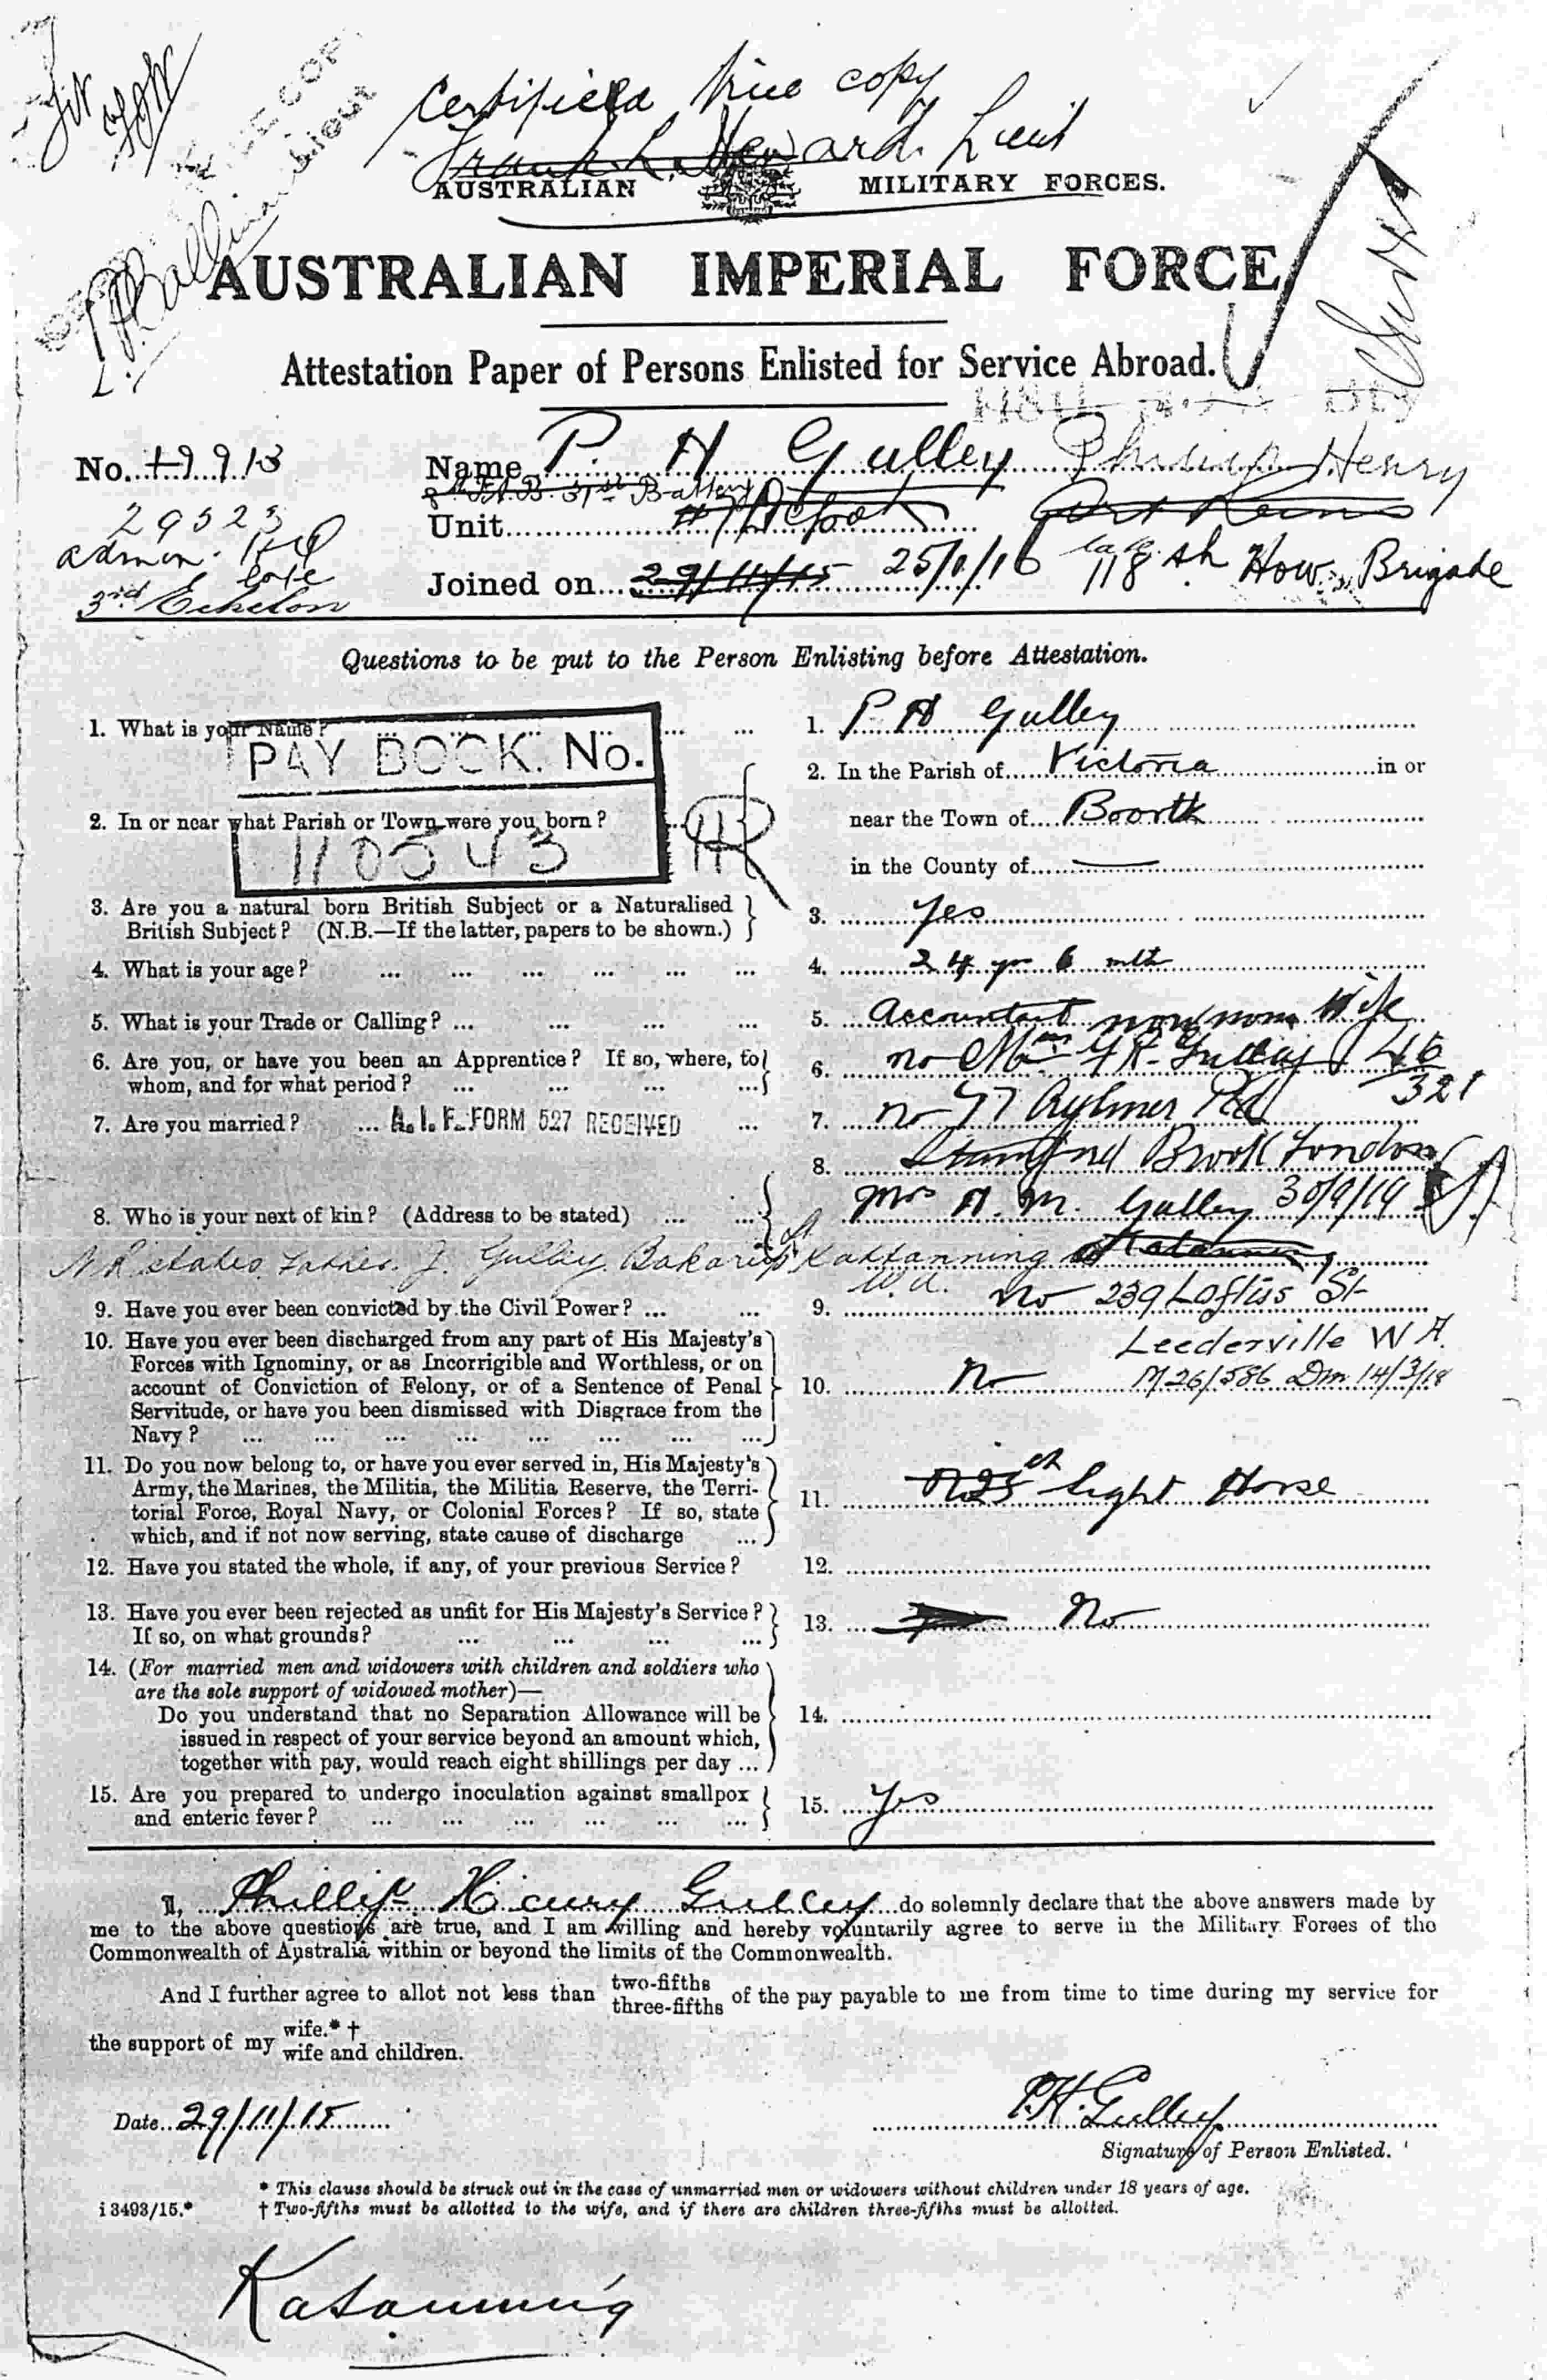 Certified true copy
Lieut
AUSTRALIAN MILITARY FORCES.
AUSTRALIAN IMPERIAL FORCE
Attestation Paper of Persons Enlisted for Service Abroad.
No. 19913 Name P. H Gulley Phillip Henry
29523 8th F.A.B. 31st Battery
Unit Depot
admin. HQ
3rd Echelon
Joined on 29/11/15 25/1/16 118th How. Brigade
Questions to be put to the Person Enlisting before Attestation.
1. What is your Name? ... ... 1. P H Gulley
PAY BOOK. No.
110543
2. In or near what Parish or Town were you born? 2. In the Parish of Victoria in or
near the Town of Boorth
in the County of —
3. Are you a natural born British Subject or a Naturalised
British Subject? (N.B.—If the latter, papers to be shown.) 3. Yes
4. What is your age? ... ... ... ... ... ... 4. 24 yr 6 mth
5. What is your Trade or Calling? ... ... ... ... 5. Accountant now Wife
6. Are you, or have you been an Apprentice? If so, where, to
whom, and for what period? ... ... ... 6. no Gulley 46/321
7. Are you married? ... A.I.F. FORM 527 RECEIVED ... 7. no 77 Aylmer Rd
8. Stamford Brook London
8. Who is your next of kin? (Address to be stated) ... ... Mrs A. M. Gulley 30/9/19
NR states Father J. Gulley Katanning Katanning
W.A.
9. Have you ever been convicted by the Civil Power? ... ... 9. no 239 Loftus St
Leederville W A.
10. Have you ever been discharged from any part of His Majesty's
Forces with Ignominy, or as Incorrigible and Worthless, or on
account of Conviction of Felony, or of a Sentence of Penal
Servitude, or have you been dismissed with Disgrace from the
Navy? ... ... ... ... ... ... ... ... 10. No M26/586 Dm 14/3/18
11. Do you now belong to, or have you ever served in, His Majesty's
Army, the Marines, the Militia, the Militia Reserve, the Terri-
torial Force, Royal Navy, or Colonial Forces? If so, state
which, and if not now serving, state cause of discharge ... 11. 25th Light Horse
12. Have you stated the whole, if any, of your previous Service? 12.
13. Have you ever been rejected as unfit for His Majesty's Service?
If so, on what grounds? ... ... ... ... 13. No
14. (For married men and widowers with children and soldiers who
are the sole support of widowed mother)—
Do you understand that no Separation Allowance will be
issued in respect of your service beyond an amount which,
together with pay, would reach eight shillings per day ... 14.
15. Are you prepared to undergo inoculation against smallpox
and enteric fever? ... ... ... ... ... ... 15. Yes
I, Phillip Henry Gulley do solemnly declare that the above answers made by
me to the above questions are true, and I am willing and hereby voluntarily agree to serve in the Military Forces of the
Commonwealth of Australia within or beyond the limits of the Commonwealth.
And I further agree to allot not less than two-fifths three-fifths of the pay payable to me from time to time during my service for
the support of my wife.* † wife and children.
Date 29/11/15 P.H. Gulley
Signature of Person Enlisted.
* This clause should be struck out in the case of unmarried men or widowers without children under 18 years of age.
i3493/15.* † Two-fifths must be allotted to the wife, and if there are children three-fifths must be allotted.
Katanning